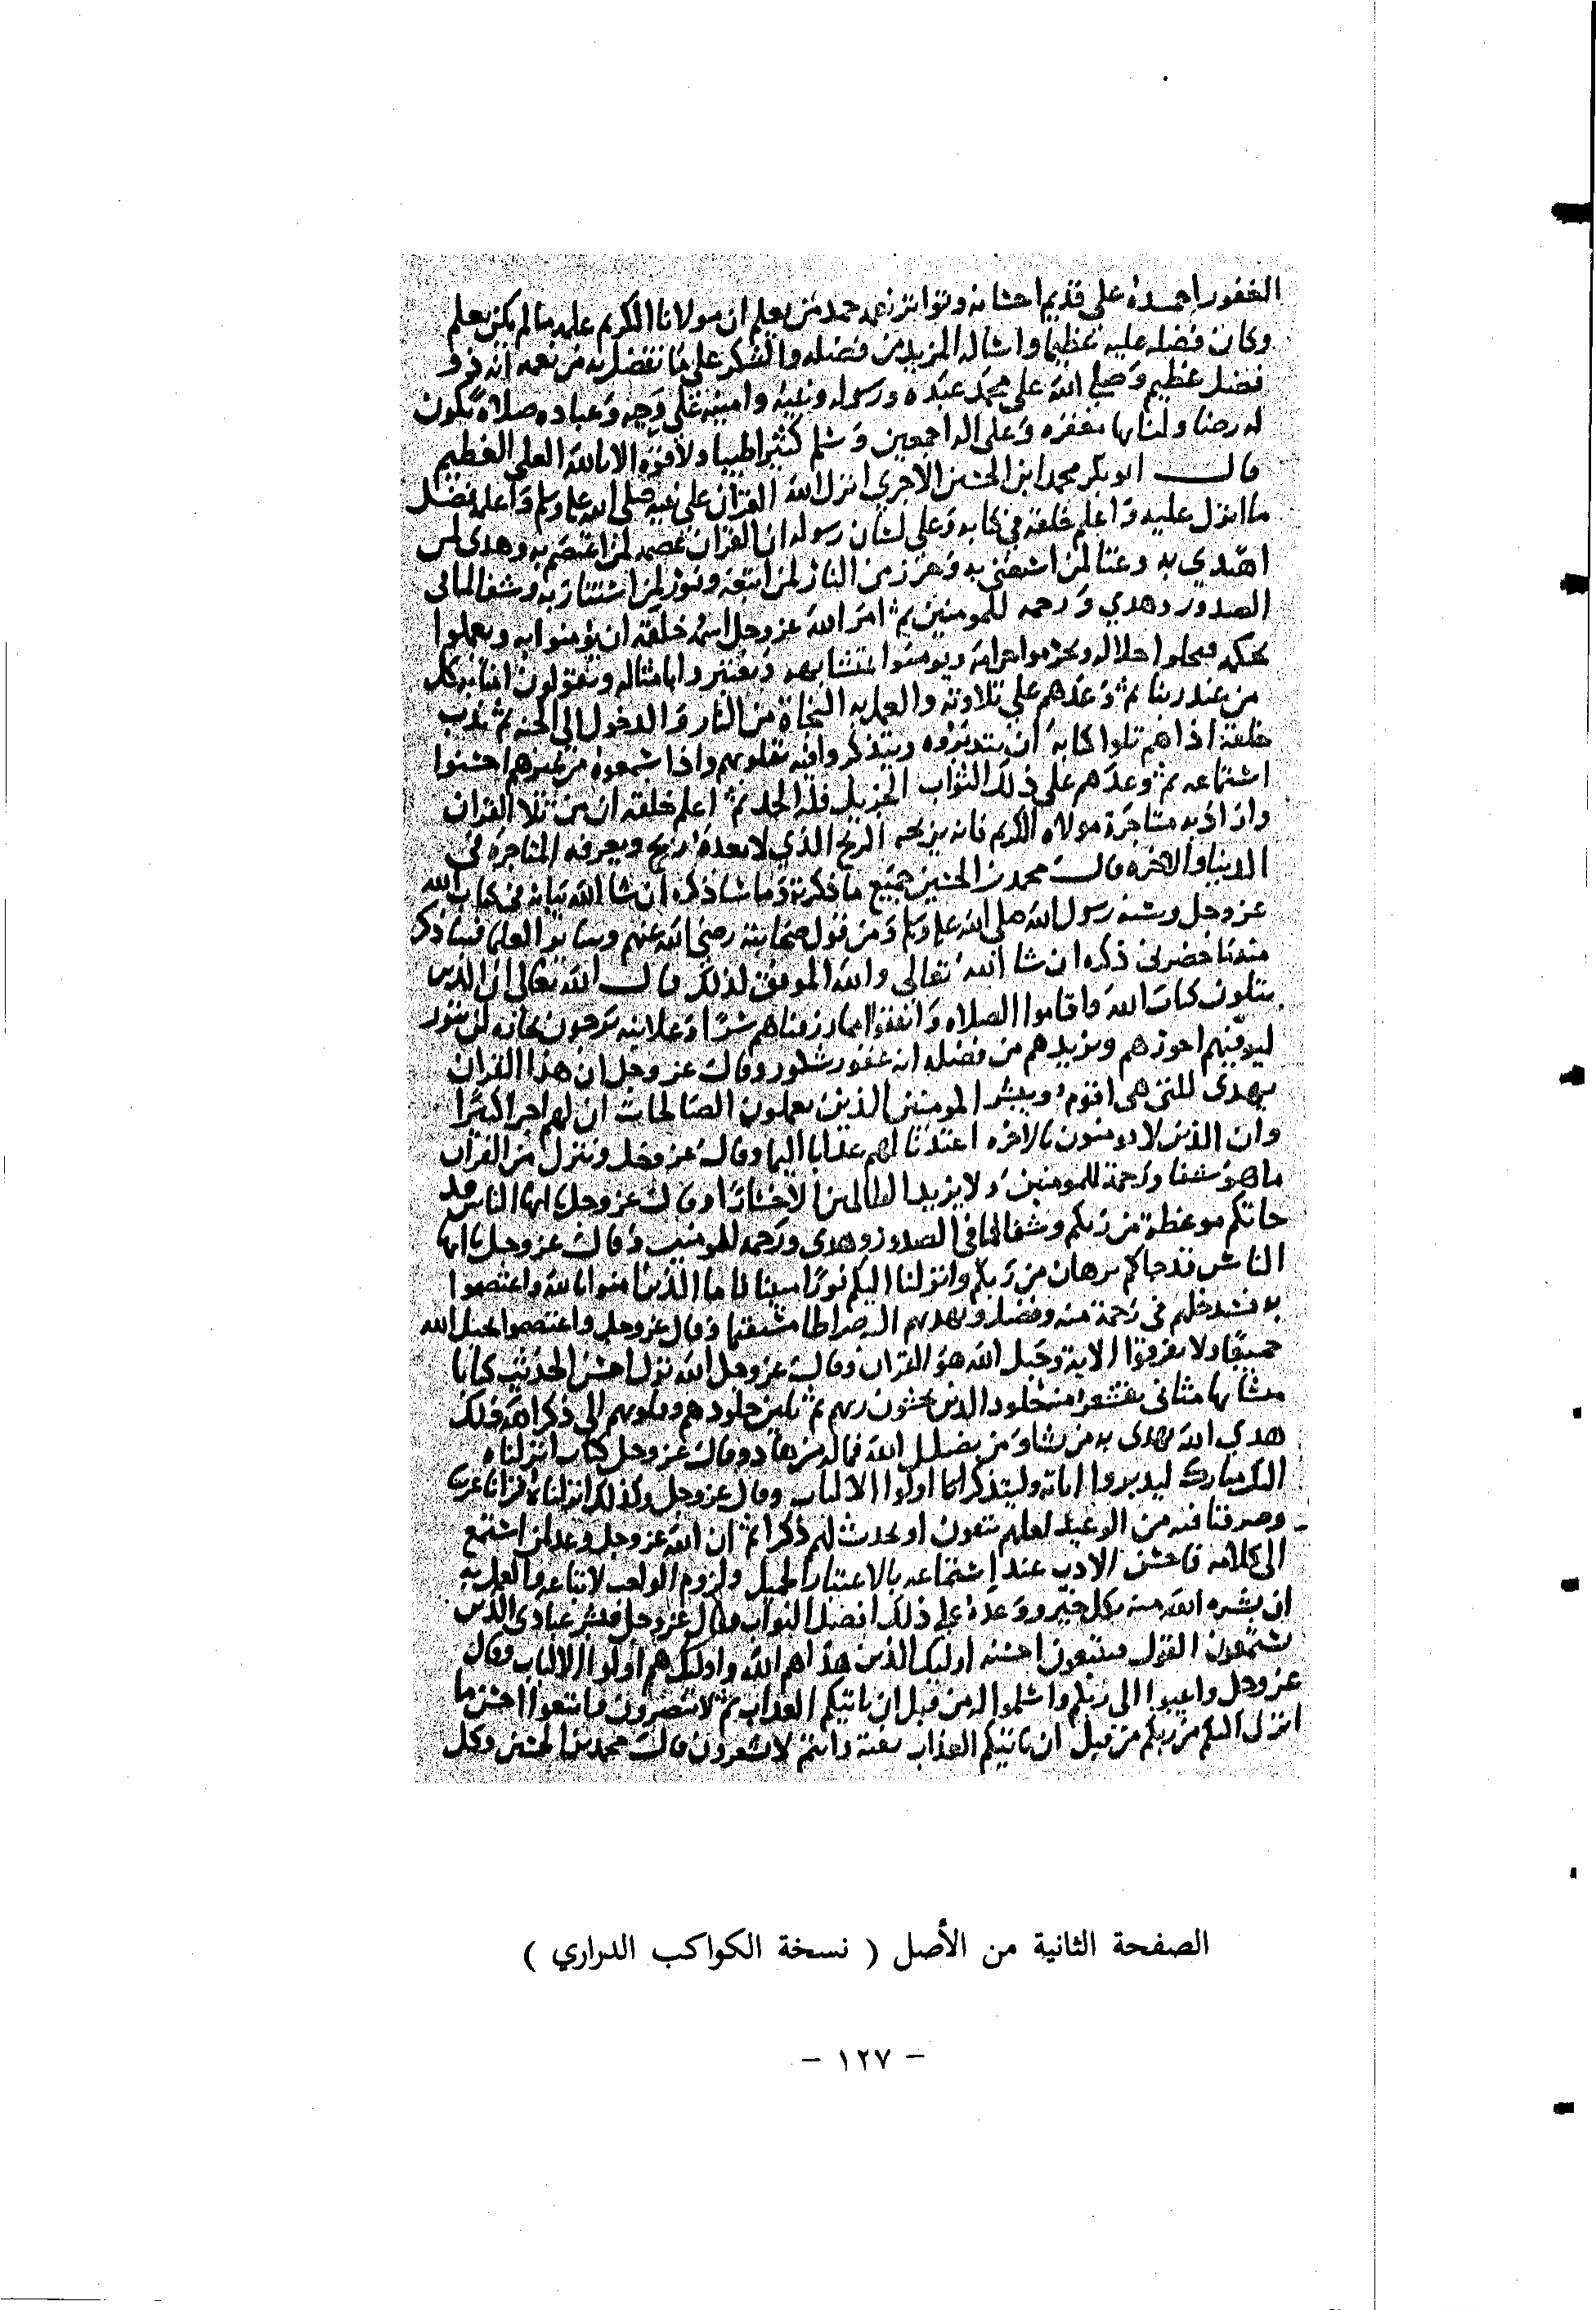 الغفور احمده على قديم احسانه وتواتر نعمه حمد من يعلم ان مولانا الكريم علمه ما لم يكن يعلم
وكان فضله عليه عظيما واساله المزيد من فضله والشكر على ما تفضل به من نعمه انه ذو
فضل عظيم وصلى الله على محمد عبده ورسوله ونبيه وامينه على وحيه وعباده صلاة تكون
له رضا ولنا بها مغفره وعلى اله اجمعين وسلم كثيرا طيبا ولا قوة الا بالله العلي العظيم
قال ابو بكر محمد ابن الحسين الاجري انزل الله القران على نبيه صلى الله عليه وسلم واعلمه فضل
ما انزل عليه واعلم خلقه في كتابه وعلى لسان رسوله ان القران عصمه لمن اعتصم به وهدى لمن
اهتدي به وغنا لمن استغنى به وحرز من النار لمن اتبعه ونور لمن استنار به وشفا لما في
الصدور وهدي ورحمه للمومنين ثم امر الله عز وجل خلقه ان يؤمنوا به ويعملوا
بمحكمه فيحلوا حلاله ويحرموا حرامه ويومنوا بمتشابهه ويعتبروا بامثاله ويقولون امنا به كل
من عند ربنا ثم وعدهم على تلاوته والعمل به النجاة من النار والدخول الى الجنه ثم ندب
خلقه اذا هم تلوا كتابه ان يتدبروه ويتذكروا فيه بقلوبهم واذا سمعوه من غيرهم احسنوا
استماعه ثم وعدهم على ذلك الثواب الجزيل فله الحمد ثم اعلم خلقه ان من تلا القران
واراد به متاجرة مولاه الكريم فانه يربحه الربح الذي لا بعده ربح ويعرفه المتاجرة في
الدنيا والاخره قال محمد بن الحسين جميع ما ذكرته وما ساذكره ان شا الله بيانه في كتاب الله
عز وجل وسنه رسول الله صلى الله عليه وسلم ومن قول صحابته رضي الله عنهم وساير العلما وساذكر
منه ما حضرني ذكره ان شا الله تعالى والله الموفق لذلك قال الله تعالى ان الذين
يتلون كتاب الله واقاموا الصلاه وانفقوا مما رزقناهم سرا وعلانيه يرجون تجاره لن تبور
ليوفيهم اجورهم ويزيدهم من فضله انه غفور شكور وقال عز وجل ان هذا القران
يهدى للتي هي اقوم ويبشر المومنين الذين يعملون الصالحات ان لهم اجرا كبيرا
وان الذين لا يومنون بالاخره اعتدنا لهم عذابا اليما وقال عز وجل وننزل من القران
ما هو شفا ورحمة للمومنين ولا يزيد الظالمين الا خسارا وقال عز وجل يا ايها الناس قد
جاتكم موعظة من ربكم وشفا لما في الصدور وهدى ورحمه للمومنين وقال عز وجل يا ايها
الناس قد جاكم برهان من ربكم وانزلنا اليكم نورا مبينا فاما الذين امنوا بالله واعتصموا
به فسيدخلهم في رحمة منه وفضل ويهديهم اليه صراطا مستقيما وقال عز وجل واعتصموا بحبل الله
جميعا ولا تفرقوا الاية وحبل الله هو القران وقال عز وجل الله نزل احسن الحديث كتابا
متشابها مثاني تقشعر منه جلود الذين يخشون ربهم ثم تلين جلودهم وقلوبهم الى ذكر الله ذلك
هدي الله يهدى به من يشاو من يضلل الله فماله من هاد وقال عز وجل كتاب انزلناه
اليك مبارك ليدبروا اياته وليتذكر اولوا الالباب وقال عز وجل وكذلك انزلناه قرانا عربيا
وصرفنا فيه من الوعيد لعلهم يتقون او يحدث لهم ذكرا ثم ان الله عز وجل وعد لمن استمع
الى كلامه فاحسن الادب عند استماعه بالاعتبار الجميل ولزوم الواجب لاتباعه والعمل به
ان بشره الله منه بكل خير ووعده على ذلك افضل الثواب وقال عز وجل فبشر عبادي الذين
يستمعون القول فيتبعون احسنه اوليك الذين هداهم الله واوليك هم اولوا الالباب وقال
عز وجل وانيبوا الى ربكم واسلموا له من قبل ان ياتيكم العذاب ثم لا تنصرون واتبعوا احسن ما
انزل اليكم من ربكم من قبل ان ياتيكم العذاب بغتة وانتم لا تشعرون قال محمد بن الحسين وكل
الصفحة الثانية من الأصل ( نسخة الكواكب الدراري )
- ١٢٧ -